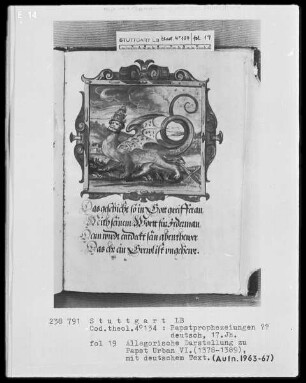 STUTTGART LB
fol 19
Das geschicht so in Gott
Mitt seinem Wortt für Jederman
Dann würdt entdeckt sein abentheuer
Das ehr ein Grewl ist ungeheuer.
238 791 Stuttgart LB
Cod.theol.4°134 : Papstprophezeiungen
deutsch, 17.Jh.
fol 19 Allegorische Darstellung zu
Papst Urban VI.(1378-1389),
mit deutschem Text. (Aufn.1963-67)